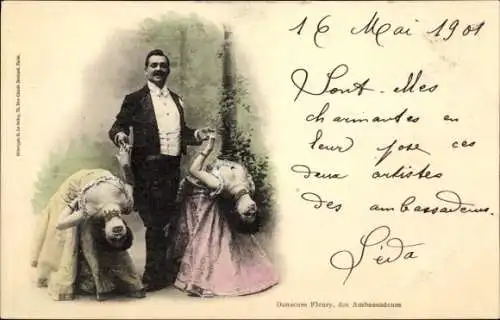 16 Mai 1901
Sont-elles
charmantes en
leur pose ces
deux artistes
des ambassadeurs.
Léda
Danseurs Fleury, des Ambassadeurs